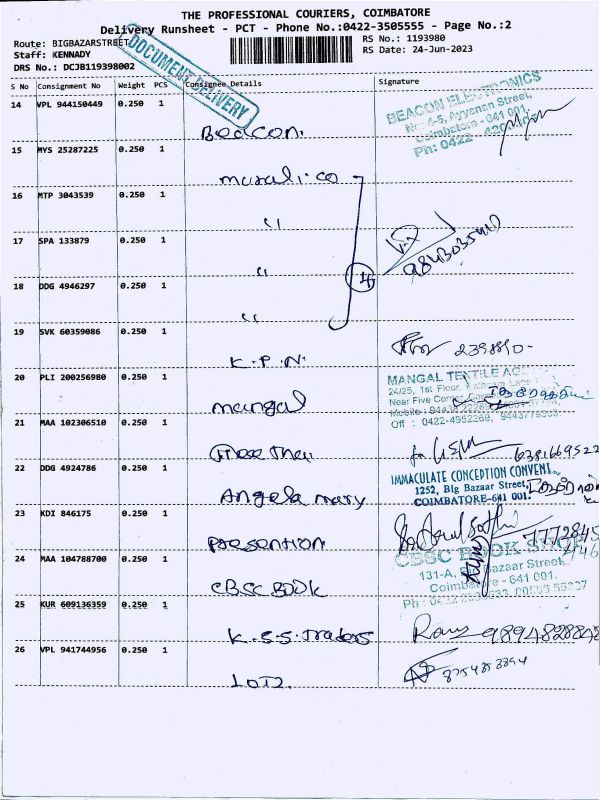 THE PROFESSIONAL COURIERS, COIMBATORE
Delivery Runsheet - PCT - Phone No.:0422-3505555 - Page No.:2
Route: BIGBAZARSTREET
RS No.: 1193980
Staff: KENNADY
RS Date: 24-Jun-2023
DRS No.: DCJB119398002
DOCUMENT DELIVERY
S No Consignment No Weight PCS Consignee Details Signature
14 VPL 944150449 0.250 1
Beacon.
BEACON ELECTRONICS
Coimbatore - 641 001.
Ph: 0422
15 MYS 25287225 0.250 1
murali.co
16 MTP 3043539 0.250 1
"
17 SPA 133879 0.250 1
"
4
18 DDG 4946297 0.250 1
"
19 SVK 60359086 0.250 1
K.P.N.
20 PLI 200256980 0.250 1
mangal
MANGAL TEXTILE
24/25, 1st Floor,
Near Five Corner
Off : 0422-4952269,
21 MAA 102306510 0.250 1
22 DDG 4924786 0.250 1
Angela mary
IMMACULATE CONCEPTION CONVENT
1252, Big Bazaar Street,
COIMBATORE-641 001.
23 KDI 846175 0.250 1
Presention
24 MAA 104788700 0.250 1
CBSC BOOK
CBSC BOOK SHOP
131-A, Big Bazaar Street,
Coimbatore - 641 001.
25 KUR 609136359 0.250 1
K.S.S. Traders
26 VPL 941744956 0.250 1